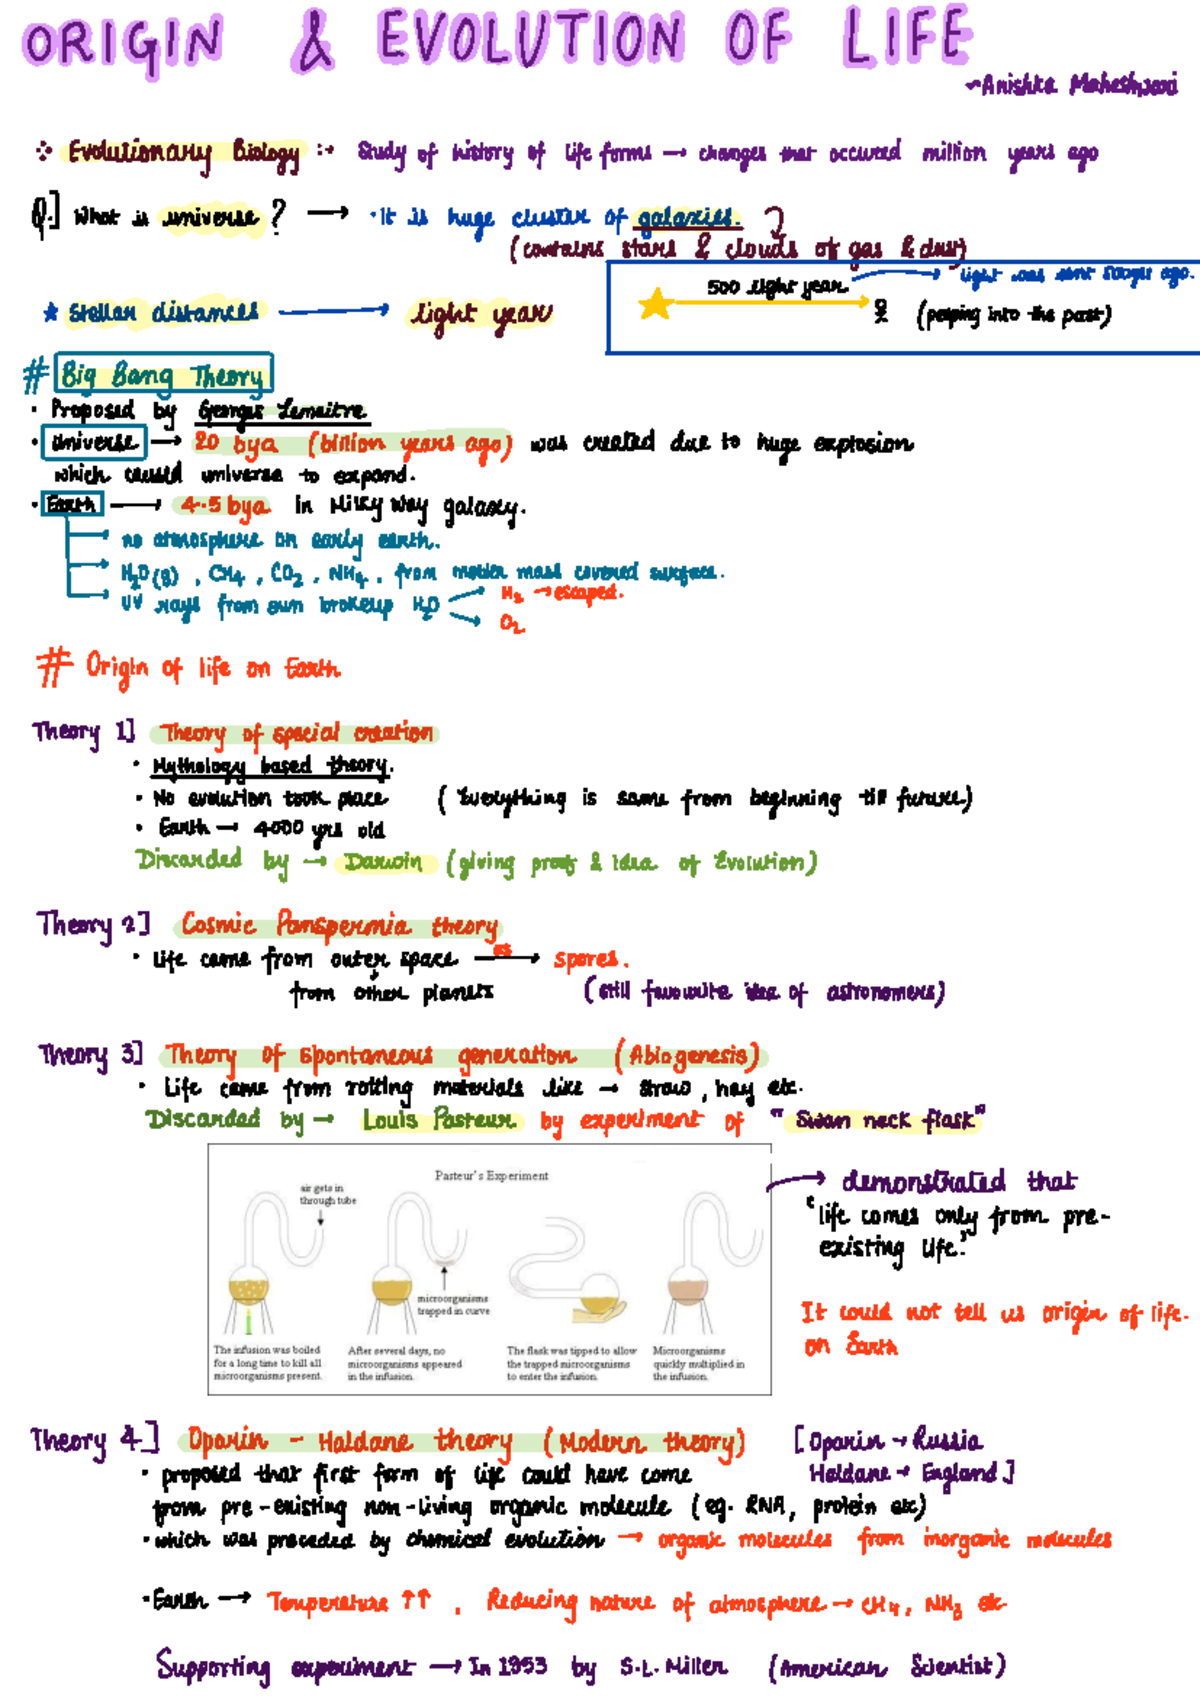 ORIGIN & EVOLUTION OF LIFE
~Anishka Maheshwari
Evolutionary Biology :→ Study of history of life forms → changes that occured million years ago
Q.] What is universe? → ·It is huge cluster of galaxies.
(contains stars & clouds of gas & dust)
500 light year → light was sent 500yr ago.
★ Stellar distances → light year
(peeping into the past)
# Big Bang Theory
· Proposed by Georges Lemaitre
· Universe → 20 bya (billion years ago) was created due to huge explosion
which caused universe to expand.
· Earth → 4.5 bya in Milky Way galaxy.
→ no atmosphere on early earth.
→ H₂O(g), CH₄, CO₂, NH₄, from molten mass covered surface.
→ UV rays from sun brokeup H₂O → H₂ → escaped.
→ O₂
# Origin of life on Earth
Theory 1] Theory of special creation
· Mythology based theory.
· No evolution took place (Everything is same from beginning till future)
· Earth → 4000 yrs old
Discarded by → Darwin (giving proofs & idea of Evolution)
Theory 2] Cosmic Panspermia theory
· Life came from outer space as → spores.
from other planets (still favourite idea of astronomers)
Theory 3] Theory of Spontaneous generation (Abiogenesis)
· Life came from rotting materials like → straw, hay etc.
Discarded by → Louis Pasteur by experiment of "Swan neck flask"
Pasteur's Experiment
air gets in
through tube
microorganisms
trapped in curve
The infusion was boiled
for a long time to kill all
microorganisms present.
After several days, no
microorganisms appeared
in the infusion.
The flask was tipped to allow
the trapped microorganisms
to enter the infusion.
Microorganisms
quickly multiplied in
the infusion.
→ demonstrated that
'life comes only from pre-
existing life.'
It could not tell us origin of life.
on Earth
Theory 4] Oparin - Haldane theory (Modern theory) [Oparin → Russia
Haldane → England]
· proposed that first form of life could have come
from pre-existing non-living organic molecule (eg. RNA, protein etc)
· which was preceded by chemical evolution → organic molecules from inorganic molecules
· Earth → Temperature ↑↑, Reducing nature of atmosphere → CH₄, NH₃ etc
Supporting experiment → In 1953 by S.L. Miller (American Scientist)